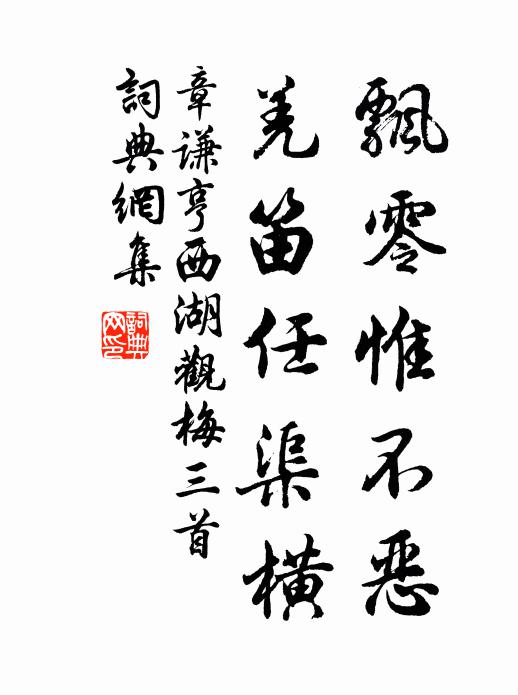 飄零惟不惡
羌笛任渠橫
章謙亨西湖觀梅三首
詞典網集
詞典
网印